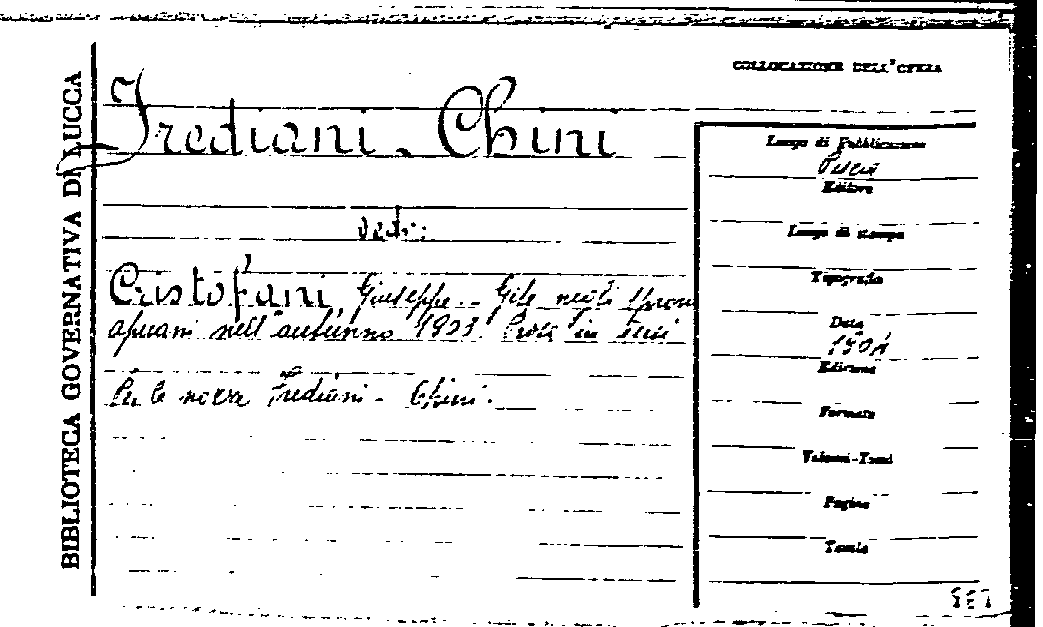 BIBLIOTECA GOVERNATIVA DI LUCCA
COLLOCAZIONE DELL'OPERA
Frediani - Chini
vedi:
Cristofani Giuseppe - Gite negli
apuani nell'autunno in
Per le nozze Frediani - Chini.
Luogo di Pubblicazione
Pescia
Editore
Luogo di stampa
Tipografia
Data
Edizione
Formato
Volumi-Tomi
Pagine
Tavole